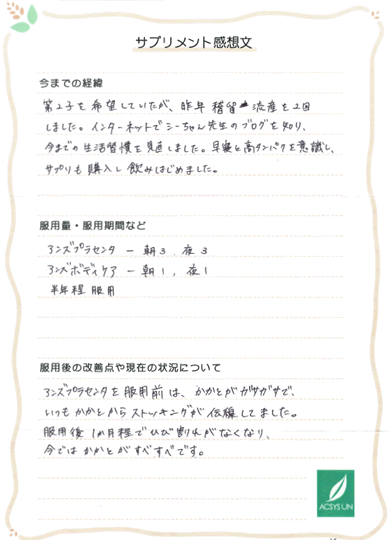 サプリメント感想文
今までの経緯
第2子を希望していたが、昨年 稽留流産を2回
しました。インターネットでシーちゃん先生のブログを知り、
今までの生活習慣を見直しました。早寝と高タンパクを意識し、
サプリも購入し飲みはじめました。
服用量・服用期間など
アンズプラセンタ － 朝3、夜3
アンズボディケア － 朝1、夜1
半年程 服用
服用後の改善点や現在の状況について
アンズプラセンタを服用前は、かかとがガサガサで、
いつもかかとからストッキングが伝線してました。
服用後 1か月程でひび割れがなくなり、
今ではかかとがすべすべです。
ACSYSUN